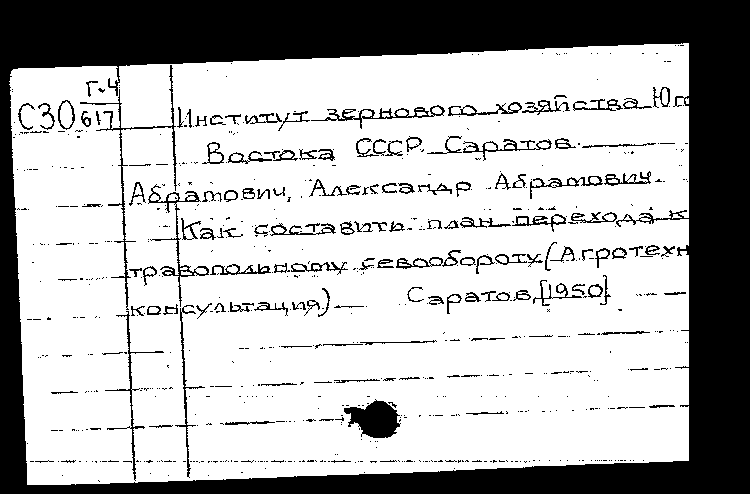 Г.4
С30 617
Институт зернового хозяйства Юго
Востока СССР. Саратов.
Абрамович, Александр Абрамович.
Как составить план перехода к
травопольному севообороту (Агротехн
консультация) Саратов, [1950].